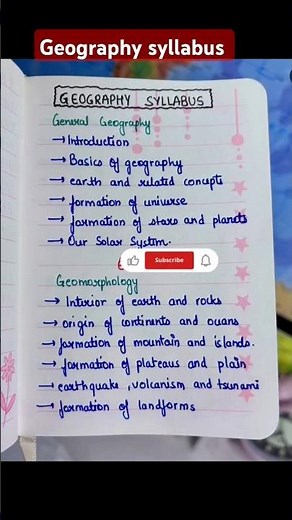 Geography syllabus
GEOGRAPHY SYLLABUS
General Geography
→ Introduction
→ Basics of geography
→ earth and related concepts
→ formation of universe
→ formation of stars and planets
→ Our Solar System.
Subscribe
Geomorphology
→ Interior of earth and rocks
→ origin of continents and oceans
→ formation of mountain and islands.
→ formation of plateaus and plain
→ earthquake, volcanism and tsunami
→ formation of landforms